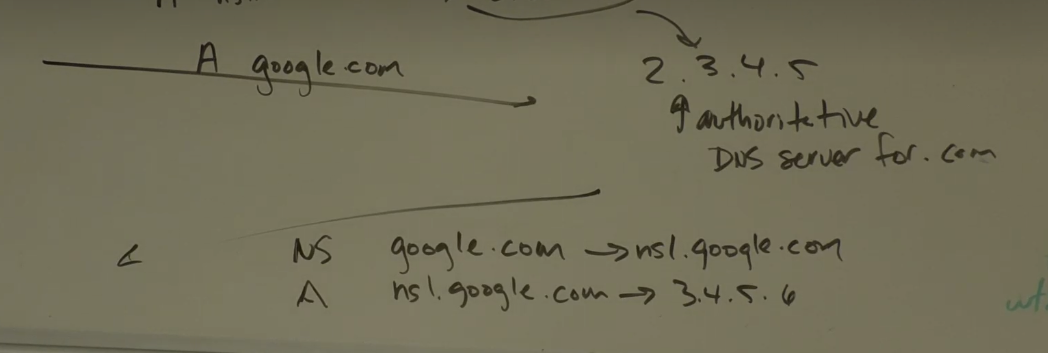 A google.com
2.3.4.5
↑ authoritative
DNS server for .com
NS google.com → ns1.google.com
A ns1.google.com → 3.4.5.6